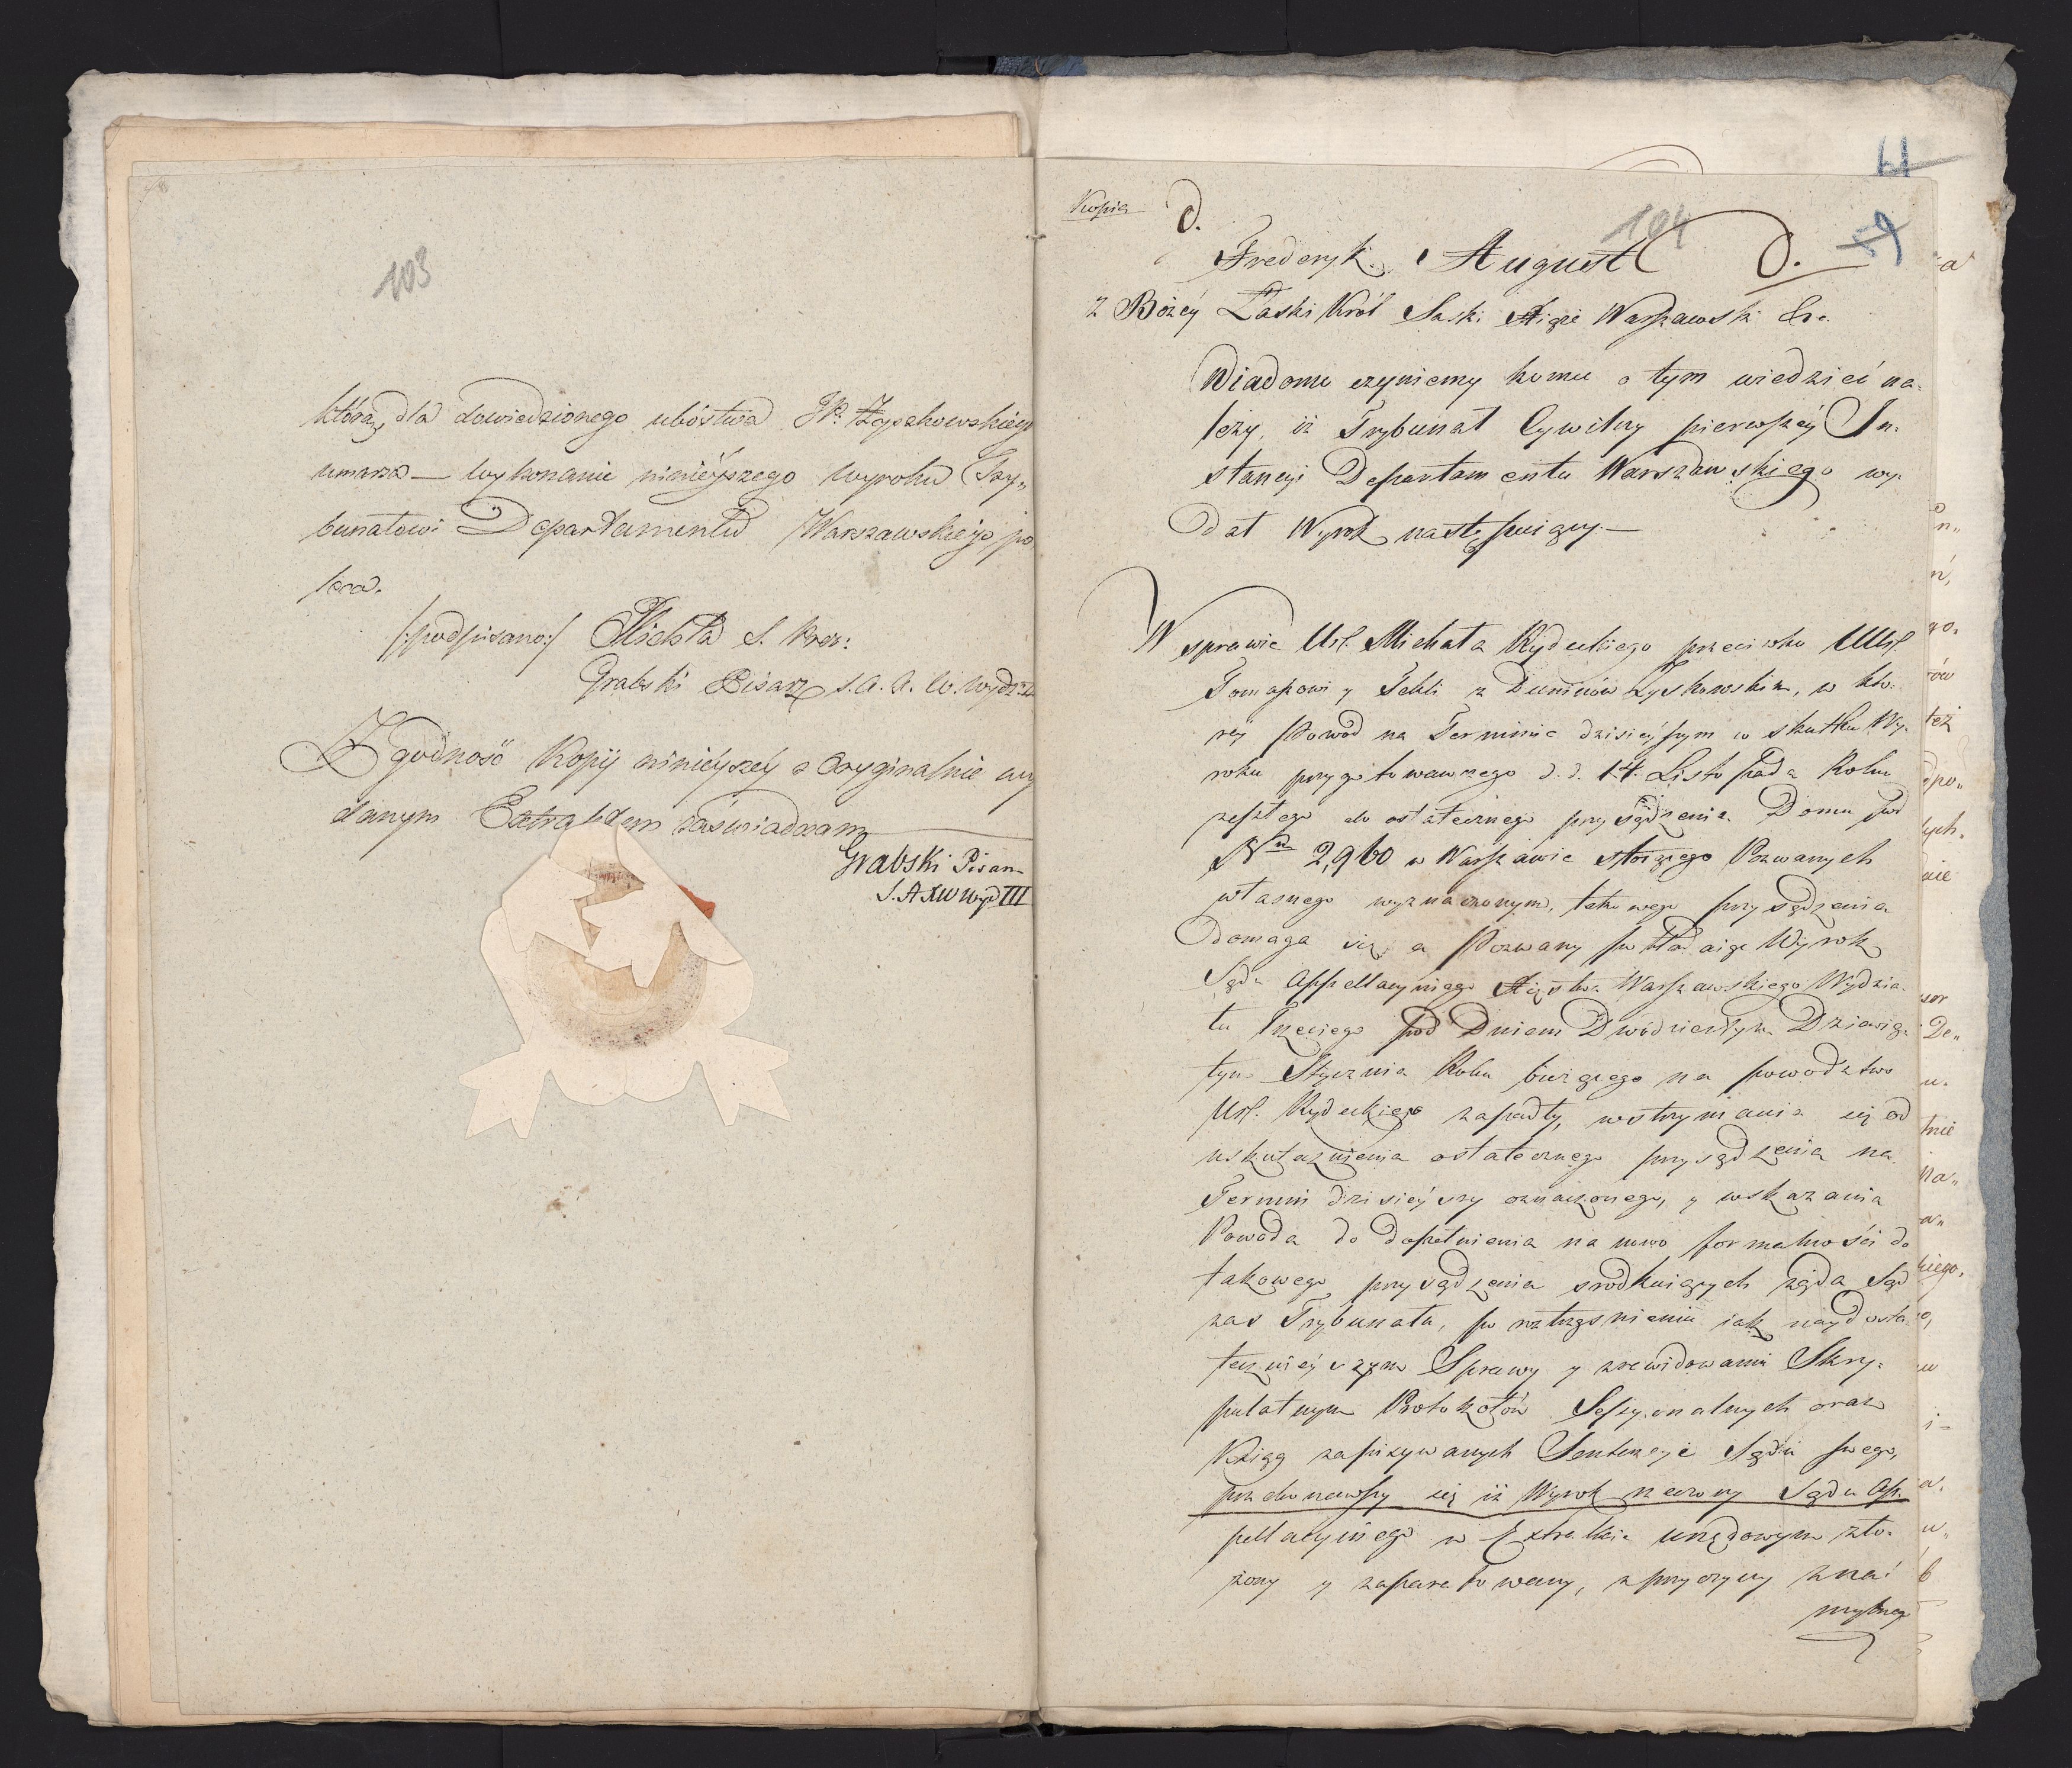 103
którą, dla dowiedzionego ubóstwa
umarza — wykonanie ninieyszego Wyroku Try„
bunałowi Departamentu Warszawskiego po
leca.
/:podpisano:/ S. Prez:
Grabski Pisarz S. A. X. W. Wydz.
Zgodność Kopii ninieyszey z Oryginalnie wy
danym Extraktem zaświadczam
Grabski Pisarz
S. A XW Wyd III
Kopia
d.
104
Frederyk August
z Bożey Łaski Król Saski Xiąże Warszawski &c.
Wiadomo czyniemy komu o tym wiedzieć na-
leży, iż Trybunał Cywilny pierwszey In-
stancyi Departamentu Warszawskiego wy-
dał Wyrok następuiący.—
W sprawie Ur. Michała Rydeckiego przeciwko UUr.
Tomaszowi y Tekli z Duninów Łyskowskim, w któ-
rey Powód na Terminie dzisieyszym w skutku Wy-
roku przygotowawczego d. d. 14. Listopada Roku
zeszłego do ostatecznego przysądzenia Domu pod
Nrem 2,960 w Warszawie stoiącego Pozwanych
własnego wyznaczonym, takowego przysądzenia
domaga się, a Pozwany składaiąc Wyrok
Sądu Appellacyinego Xięstwa Warszawskiego Wydzia-
łu Trzeciego pod Dniem Dwudziestym Dziewią-
tym Stycznia Roku bieżącego na powództwo
Ur. Rydeckiego zapadły, wstrzymania się od
uskutecznienia ostatecznego przysądzenia na
Termin dzisieyszy oznaczonego, y wskazania
Powoda do dopełnienia na nowo formalności do
takowego przysądzenia żąda Sąd
zaś Trybunału, po roztrząśnieniu iak naydosta-
tecznieyszym Sprawy y zrewidowaniu Skry-
pulatnym Protokołów Sessyonalnych oraz
Xiąg zapisywanych Sentencyi Sądu swego,
przekonawszy się iż Wyrok rzeczony Sądu Ap-
pellacyinego w Extrakcie urzędowym zło-
żony y zaparafowany, z przyczyny